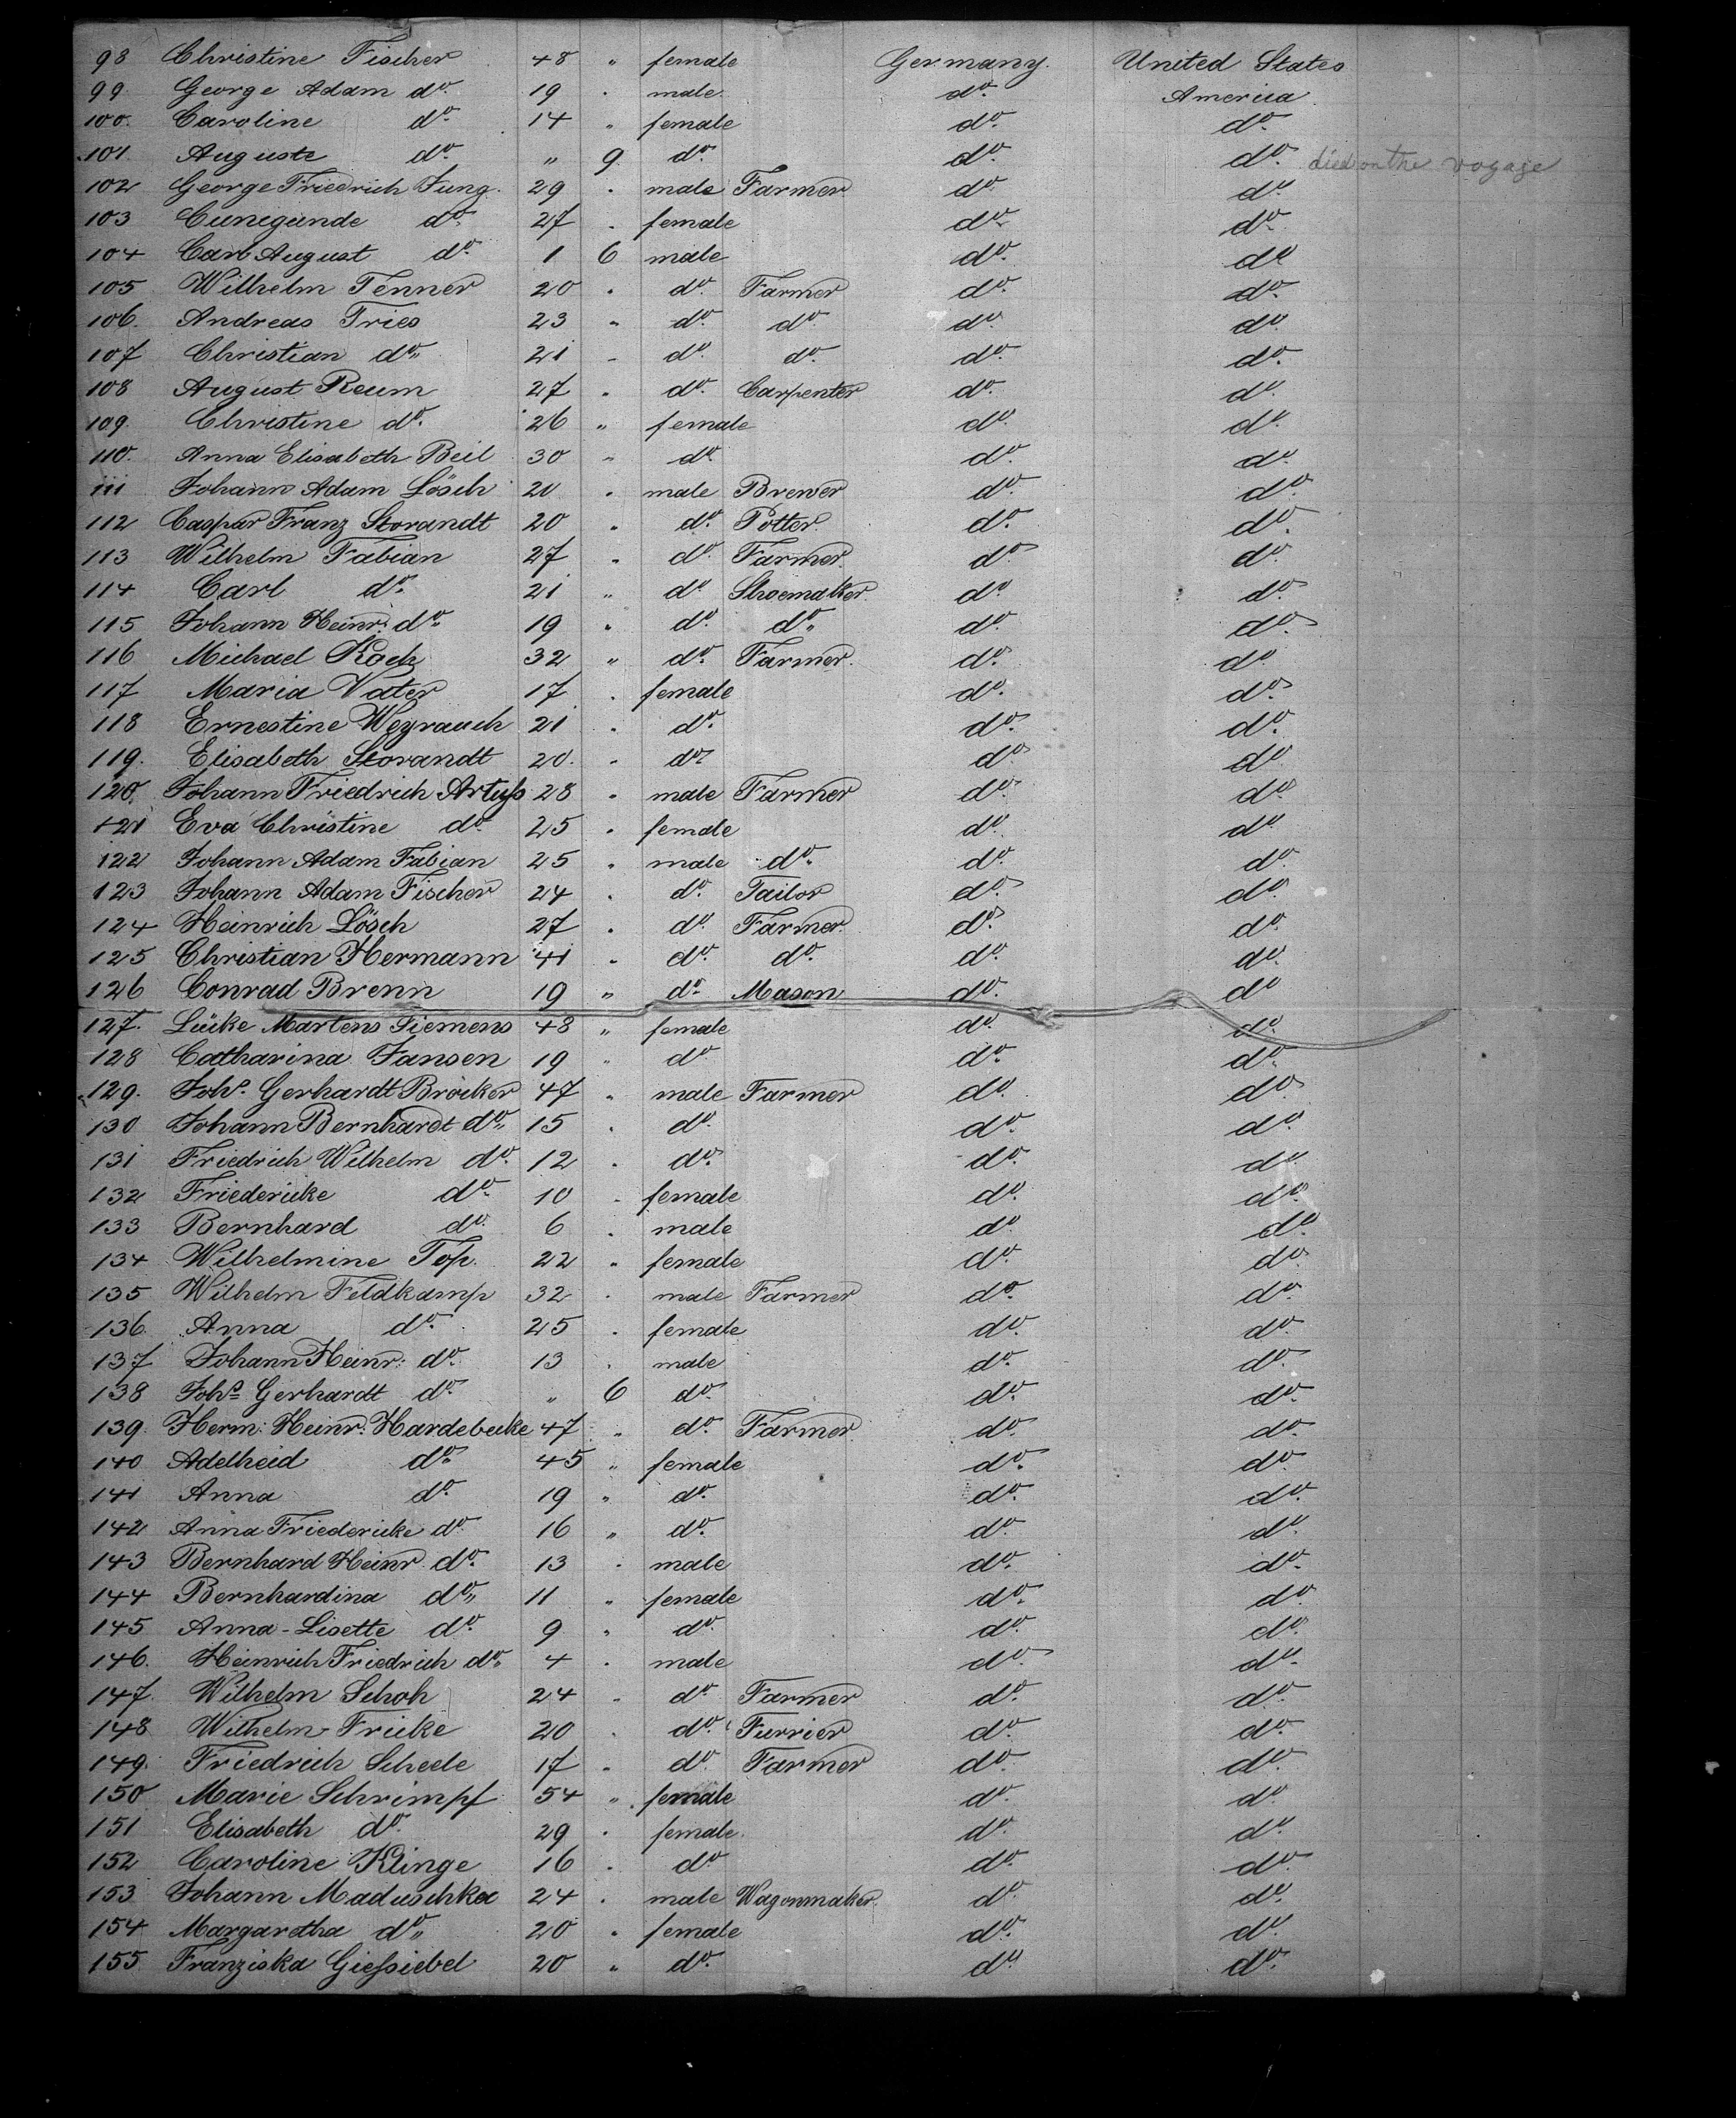 98 Christine Fischer 48 " female Germany. United States
99 George Adam do. 19 " male. do. America.
100. Caroline do. 14 " female do. do.
101. Auguste do. " 9 do. do. do. died on the voyage
102 George Friedrich Jung. 29 " male Farmer do. do.
103 Cunigunde do. 27 " female do. do.
104 Carl August do. 1 6 male do. do
105 Wilhelm Tenner 20 " do. Farmer do. do.
106. Andreas Tries 23 " do. do. do. do.
107 Christian do. 21 " do. do. do. do.
108 August Reum 27 " do. Carpenter do. do.
109. Christine do. 26 " female do. do.
110. Anna Elisabeth Beil 30 " do. do. do.
111 Johann Adam Lösch 20 " male Brewer do. do.
112 Caspar Franz Storandt 20 " do. Potter. do. do.
113 Wilhelm Fabian 27 " do. Farmer. do. do.
114 Carl do. 21 " do. Shoemaker. do. do.
115 Johann Heinr: do. 19 " do. do. do. do.
116 Michael Koch 32 " do. Farmer. do. do.
117 Maria Vater 17 " female do. do.
118 Ernestine Weyrauch 21 " do. do. do.
119. Elisabeth Storandt 20. " do. do. do.
120. Johann Friedrich Artuss 28 " male Farmer do. do.
121 Eva Christine do. 25 " female do. do.
122 Johann Adam Fabian 25 " male do. do. do.
123 Johann Adam Fischer 24 " do. Tailor do. do.
124 Heinrich Lösch 27 " do. Farmer. do. do.
125 Christian Hermann 41 " do. do. do. do.
126 Conrad Brenn 19 " do. Mason do. do
127. Lücke Martens Siemens 48 " female do. do.
128 Catharina Jansen 19 " do. do. do.
129. Johs. Gerhardt Bröcker 47 " male Farmer do. do.
130 Johann Bernhardt do. 15 " do. do. do.
131 Friedrich Wilhelm do. 12 " do. do. do.
132 Friedericke do. 10 " female do. do.
133 Bernhard do. 6 " male do. do.
134 Wilhelmine Top. 22 " female do. do.
135 Wilhelm Feldkamp 32 " male Farmer do. do.
136. Anna do. 25 " female do. do.
137 Johann Heinr: do. 13 " male do. do.
138 Johs Gerhardt do. " 6 do. do. do.
139. Herm: Heinr: Hardebecke 47 " do. Farmer. do. do.
140 Adelheid do. 45 " female do. do.
141 Anna do. 19 " do. do. do.
142 Anna Friedericke do. 16 " do. do. do.
143 Bernhard Heinr. do. 13 " male do. do.
144 Bernhardina do. 11 " female do. do.
145 Anna-Lisette do. 9 " do. do. do.
146. Heinrich Friedrich do. 4 " male do. do.
147. Wilhelm Schoh 24 " do. Farmer do. do.
148 Wilhelm Fricke 20 " do. Furrier do. do.
149. Friedrich Scheele 17 " do. Farmer do. do.
150 Marie Schrimpf 54 " female do. do.
151 Elisabeth do. 29 " female. do. do.
152 Caroline Klinge 16 " do. do. do.
153 Johann Maduschka 24 " male Wagonmaker. do. do.
154 Margaretha do. 20 " female do. do.
155. Franziska Giessiebel 20 " do. do. do.